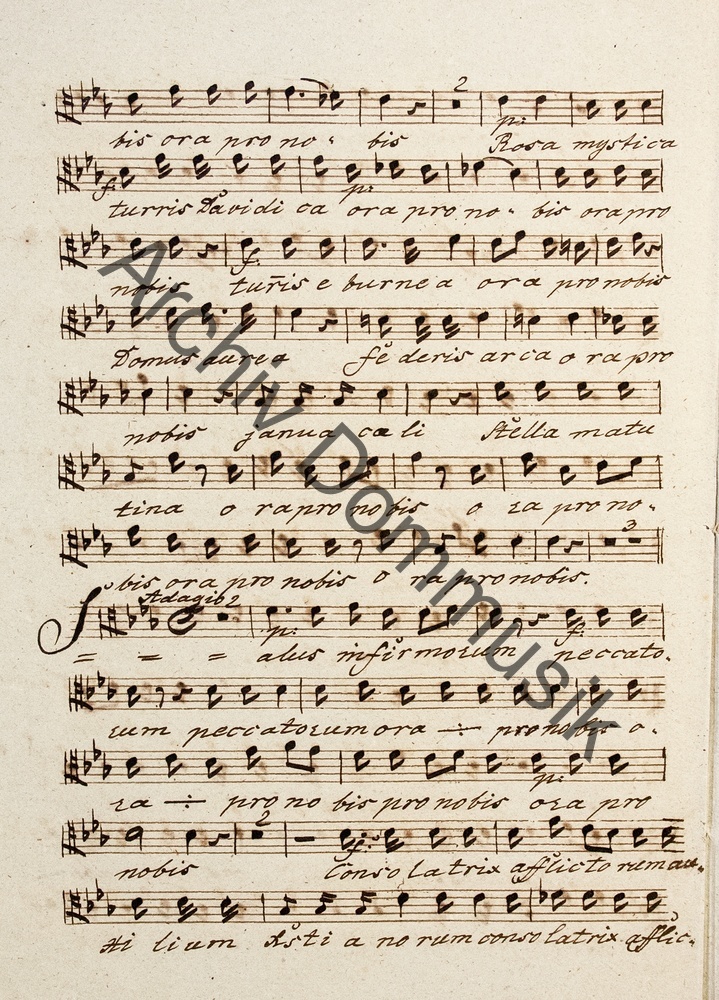 2
p:
bis ora pro no- bis Rosa mystica
f: p:
turris Davidi ca ora pro no- bis ora pro
f:
nobis turris e burnea ora pro nobis
Domus aurea fe deris arca o ra pro
nobis janua cœli Stella matu
tina o ra pro nobis o ra pro no-
3
bis ora pro nobis o ra pro nobis.
Adagio 2
p: f:
S = = = alus infirmorum peccato-
rum peccatorum ora ÷ pro nobis o-
p:
ra ÷ pro no bis pro nobis ora pro
2
f:
nobis Conso la trix afflicto rum au-
xi lium Xsti a no rum conso latrix afflic-
Archiv Dommusik